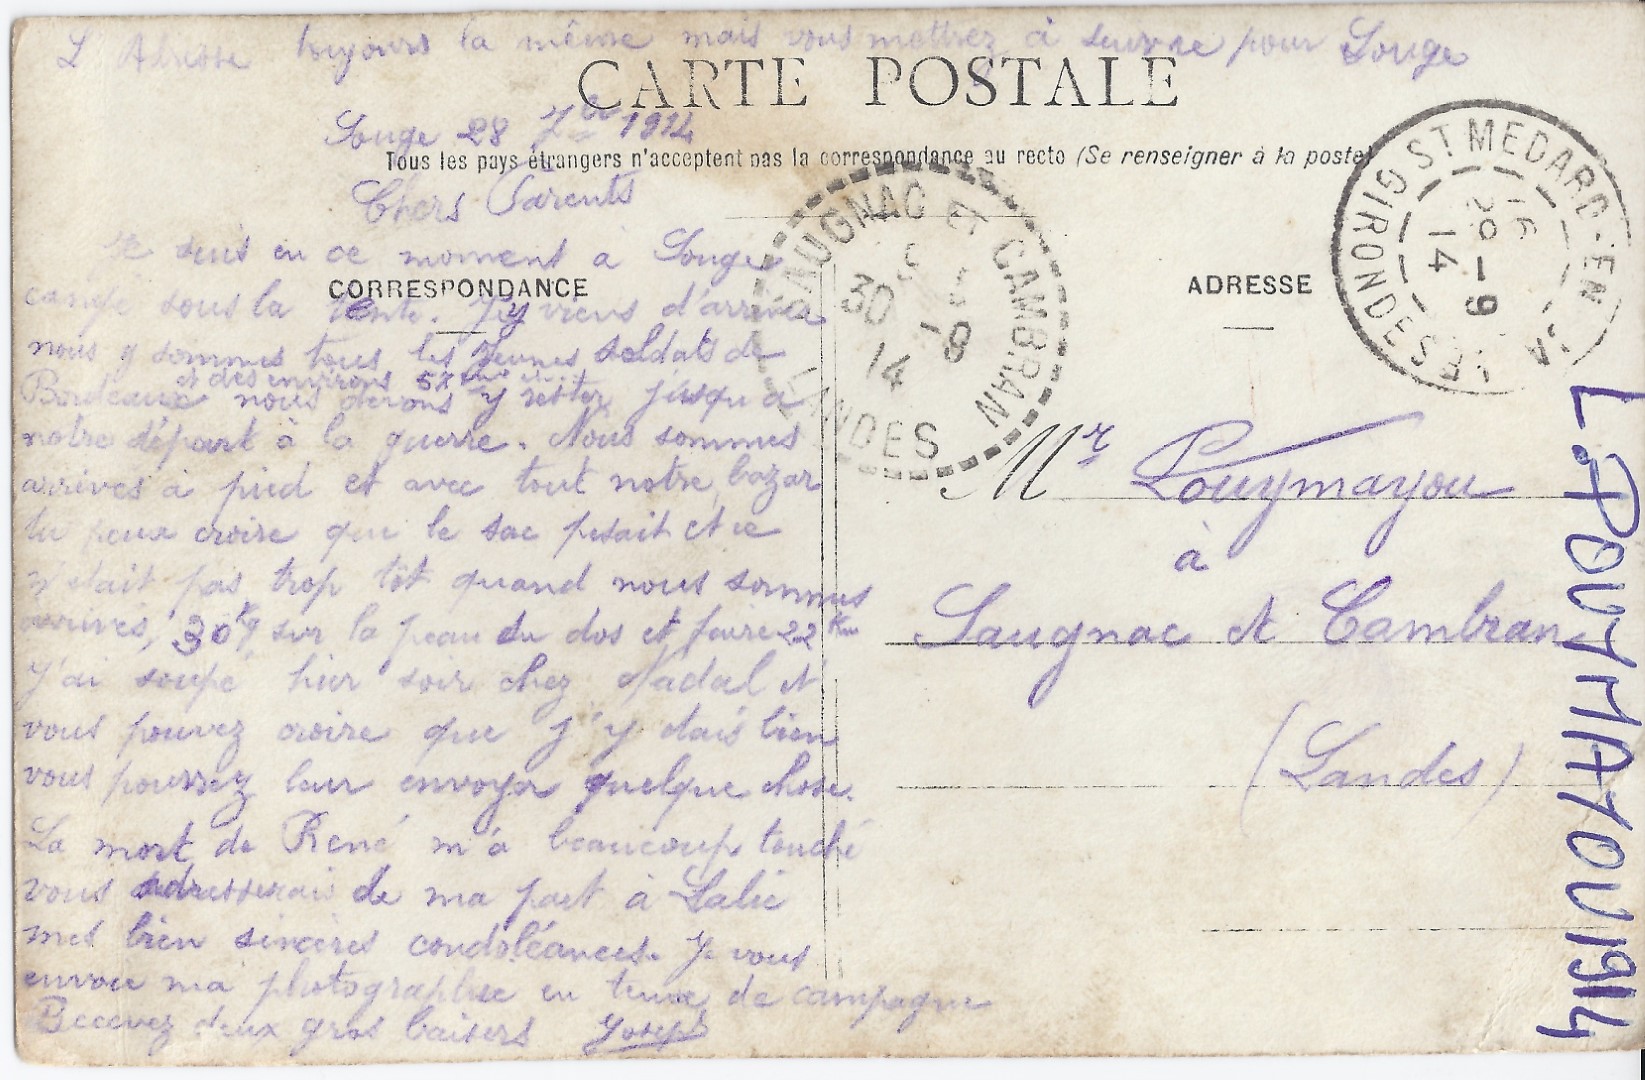 L'Adresse toujours la même mais vous mettrez à suivre pour Souge
CARTE POSTALE
Souge 28 7bre 1914
Tous les pays étrangers n'acceptent pas la correspondance au recto (Se renseigner à la poste)
Chers Parents
Je suis en ce moment à Souge
CORRESPONDANCE
campé sous la tente. J'y viens d'arriver
nous y sommes tous les jeunes soldats de
et des environs
Bordeaux nous devons y rester jusqu'à
notre départ à la guerre. Nous sommes
arrivés à pied et avec tout notre bazar
tu peux croire que le sac pesait et ce
n'était pas trop tôt quand nous sommes
arrivés, 30 kg sur la peau du dos et faire 22 Km
J'ai soupé hier soir chez Nadal et
vous pouvez croire que j'y étais bien
vous pourrez leur envoyer quelque chose.
La mort de René m'a beaucoup touché
vous adresserais de ma part à Lalie
mes bien sincères condoléances. Je vous
envoie ma photographie en tenue de campagne
Recevez deux gros baisers Joseph
SAUGNAC ET CAMBRAN
30 -9
14
LANDES
ADRESSE
ST MEDARD-EN-JALLES
GIRONDE
16
29 -9
14
Mr Pouymayou
à
Saugnac et Cambran
(Landes)
LAPOUYMAYOU 1914